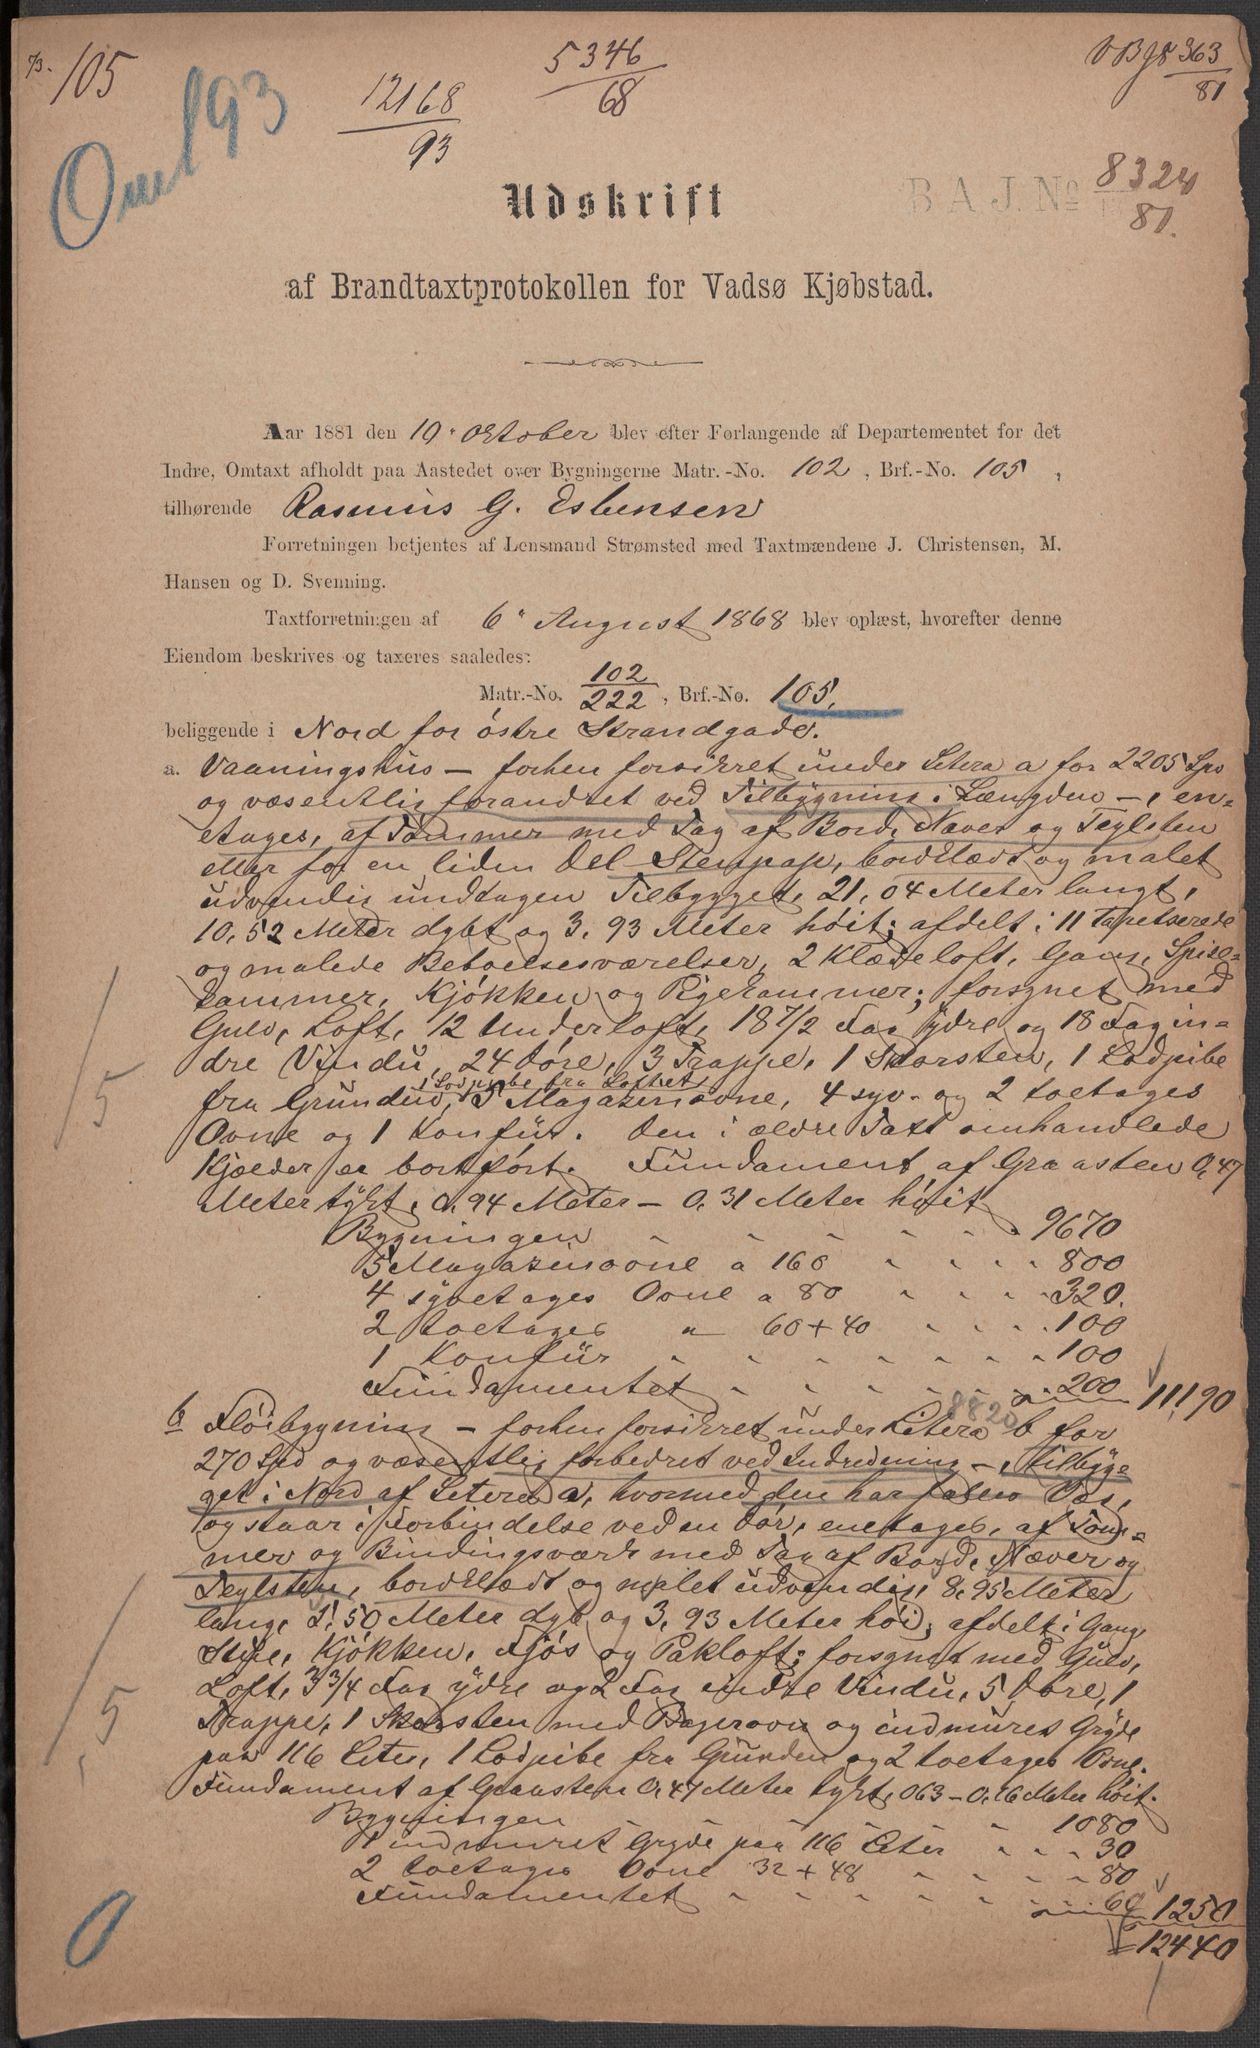 73.
105
Omt 93
12168
93
5346
68
VBJ№ 363
81
B A J. No 8324
81.
Udskrift
af Brandtaxtprotokollen for Vadsø Kjøbstad.
Aar 1881 den 19' Oktober blev efter Forlangende af Departementet for det
Indre, Omtaxt afholdt paa Aastedet over Bygningerne Matr.-No. 102, Brf.-No. 105,
tilhørende Rasmus G. Esbensen
Forretningen betjentes af Lensmand Strømsted med Taxtmændene J. Christensen, M.
Hansen og D. Svenning.
Taxtforretningen af 6' August 1868 blev oplæst, hvorefter denne
Eiendom beskrives og taxeres saaledes:
Matr.-No. 102/222, Brf.-No. 105.
beliggende i Nord for østre Strandgade.
a. Vaaningshus – forhen forsikret under Litera a for 2205 Spd
og væsentlig forandret ved Tilbygning i Længden –, en-
etages, af Tømmer med Tag af Bord, Næver og Teglsten
eller for en liden Del Stenpap, bordklædt og malet
udvendig undtagen Tilbygget, 21,04 Meter langt,
10,52 Meter dybt og 3,93 Meter høit; afdelt i 11 tapetserede
og malede Beboelsesværelser, 2 Klædeloft, Gang, Spise-
kammer, Kjøkken og Pigekammer; forsynet med
Gulv, Loft, 12 Underloft, 18 1/2 Fag ydre og 18 Fag in-
dre Vindu, 24 Døre, 3 Trappe, 1 Skorsten, 1 Lodpibe
fra Grunden, 1 Lodpibe fra Loftet, 5 Magasinovne, 4 syv- og 2 toetages
Ovne og 1 Komfür. Den i ældre Taxt omhandlede
Kjælder er bortført. Fundament af Graasten 0,47
Meter tykt, 0,94 Meter – 0,31 Meter høit
Bygningen " " " " " 9670
5 Magasinovne a 160 " " " 800
4 syvetages Ovne a 80 " " " 320.
2 toetages " 60 + 40 " " " 100
1 Komfür " " " " " " 100
Fundamentet " " " " " 200 11,190
8820
b Fløibygning – forhen forsikret under Litera b for
270 Spd og væsentlig forbedret ved Indredning –, tilbyg-
get i Nord af Litera a, hvormed den har fælles Væg,
og staar i Forbindelse ved en Dør, enetages, af Tøm-
mer og Bindingsværk med Tag af Bord, Næver og
Teglsten, bordklædt og malet udvendig, 8,95 Meter
lang, 5,50 Meter dyb og 3,93 Meter høi; afdelt i Gang,
Stue, Kjøkken, Fjøs og Pakloft; forsynet med Gulv,
Loft, 3 3/4 Fag ydre og 2 Fag indre Vindu, 5 Døre, 1
Trappe, 1 Skorsten med Bagerovn og indmuret Gryde
paa 116 Liter, 1 Lodpibe fra Grunden og 2 toetages Ovne.
Fundament af Graasten 0,47 Meter tykt, 0,63 – 0,16 Meter høit.
Bygningen " " " " " 1080
1 indmuret Gryde paa 116 Liter " " " 30
2 toetages Ovne 32 + 48 " " " " 80
Fundamentet " " " " " " 60 1250
12440
/5
/5
0